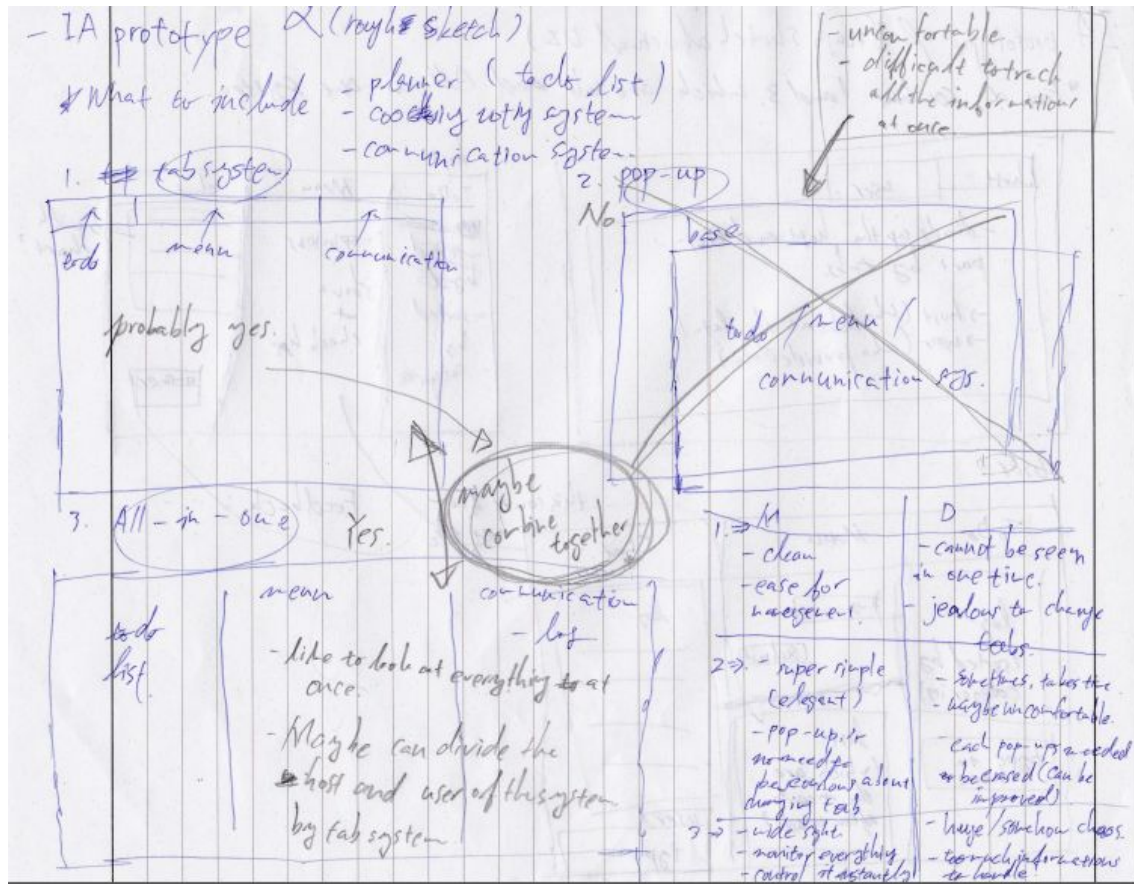 - IA prototype α (rough sketch)
* What to include - planner (todo list)
- cooking notify system
- communication system.
- uncomfortable
- difficult to track
all the informations
at once.
1. tab system
todo
menu
communication
probably yes.
2. pop-up
No
base
todo / menu /
communication sys.
maybe
combine
together
3. All-in-one
Yes.
todo
list
menu
communication
- log
- like to look at everything at
once.
- Maybe can divide the
host and user of the system
by tab system
M
1. ⇒ - clean
- ease for
management.
2 ⇒ - super simple
(elegant)
- pop-up is
no need to
be jealous about
changing tab
3 ⇒ - wide sight
- monitor everything
- control it instantly
D
- cannot be seen
in one time.
- jealous to change
tabs.
- Sometimes, takes time
- maybe uncomfortable.
- each pop-ups needed
to be erased (can be
improved)
- huge / somehow chaos.
- too much informations
to handle